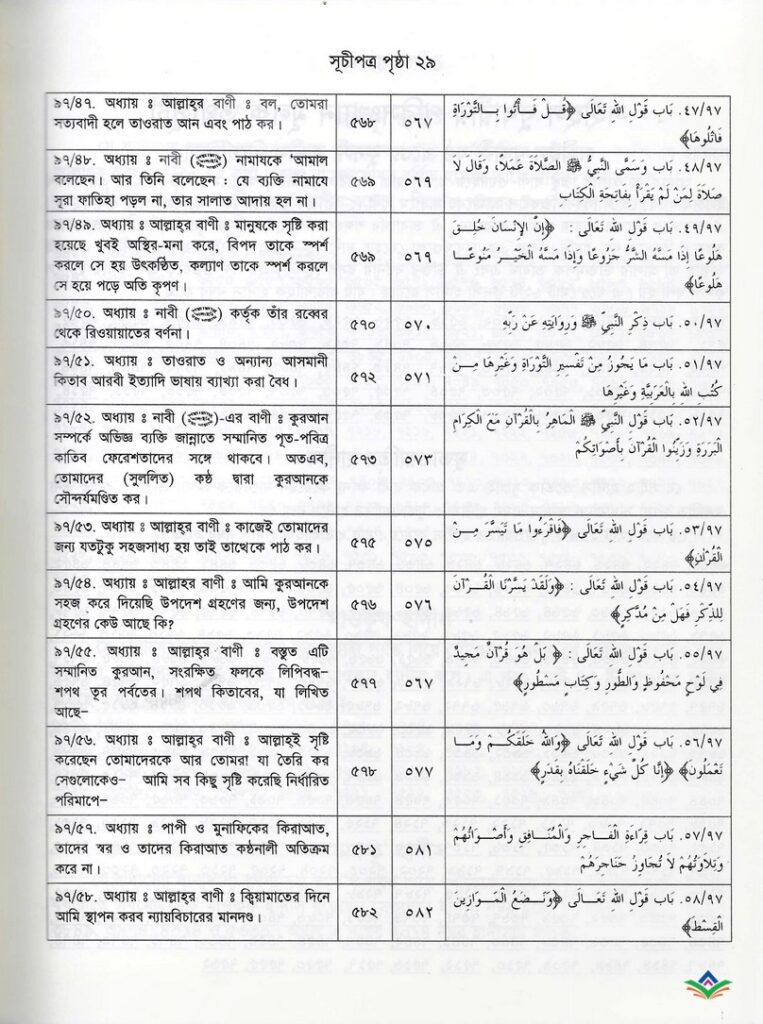 সূচীপত্র পৃষ্ঠা ২৯
৯৭/৪৭. অধ্যায় ঃ আল্লাহ্‌র বাণী ঃ বল, তোমরা
সত্যবাদী হলে তাওরাত আন এবং পাঠ কর।
৫৬৮
০৬৭
٤٧/٩٧. بَاب قَوْلِ اللهِ تَعَالَى ﴿قُلْ فَأْتُوا بِالتَّوْرَاةِ
فَاتْلُوهَا﴾
৯৭/৪৮. অধ্যায় ঃ নাবী (ﷺ) নামাযকে ‘আমাল
বলেছেন। আর তিনি বলেছেন : যে ব্যক্তি নামাযে
সূরা ফাতিহা পড়ল না, তার সালাত আদায় হল না।
৫৬৯
০৬৯
٤٨/٩٧. بَاب وَسَمَّى النَّبِيُّ ﷺ الصَّلَاةَ عَمَلًا، وَقَالَ لَا
صَلَاةَ لِمَنْ لَمْ يَقْرَأْ بِفَاتِحَةِ الْكِتَابِ
৯৭/৪৯. অধ্যায় ঃ আল্লাহ্‌র বাণী ঃ মানুষকে সৃষ্টি করা
হয়েছে খুবই অস্থির-মনা করে, বিপদ তাকে স্পর্শ
করলে সে হয় উৎকণ্ঠিত, কল্যাণ তাকে স্পর্শ করলে
সে হয়ে পড়ে অতি কৃপণ।
৫৬৯
০৬৯
٤٩/٩٧. بَاب قَوْلِ اللهِ تَعَالَى : ﴿إِنَّ الْإِنْسَانَ خُلِقَ
هَلُوعًا إِذَا مَسَّهُ الشَّرُّ جَزُوعًا وَإِذَا مَسَّهُ الْخَيْرُ مَنُوعًا
هَلُوعًا﴾
৯৭/৫০. অধ্যায় ঃ নাবী (ﷺ) কর্তৃক তাঁর রব্বের
থেকে রিওয়ায়াতের বর্ণনা।
৫৭০
০৭০
٥٠/٩٧. بَاب ذِكْرِ النَّبِيِّ ﷺ وَرِوَايَتِهِ عَنْ رَبِّهِ
৯৭/৫১. অধ্যায় ঃ তাওরাত ও অন্যান্য আসমানী
কিতাব আরবী ইত্যাদি ভাষায় ব্যাখ্যা করা বৈধ।
৫৭২
০৭১
٥١/٩٧. بَاب مَا يَجُوزُ مِنْ تَفْسِيرِ التَّوْرَاةِ وَغَيْرِهَا مِنْ
كُتُبِ اللهِ بِالْعَرَبِيَّةِ وَغَيْرِهَا
৯৭/৫২. অধ্যায় ঃ নাবী (ﷺ)-এর বাণী ঃ কুরআন
সম্পর্কে অভিজ্ঞ ব্যক্তি জান্নাতে সম্মানিত পূত-পবিত্র
কাতিব ফেরেশতাদের সঙ্গে থাকবে। অতএব,
তোমাদের (সুললিত) কণ্ঠ দ্বারা কুরআনকে
সৌন্দর্যমণ্ডিত কর।
৫৭৩
০৭৩
٥٢/٩٧. بَاب قَوْلِ النَّبِيِّ ﷺ الْمَاهِرُ بِالْقُرْآنِ مَعَ الْكِرَامِ
الْبَرَرَةِ وَزَيِّنُوا الْقُرْآنَ بِأَصْوَاتِكُمْ
৯৭/৫৩. অধ্যায় ঃ আল্লাহ্‌র বাণী ঃ কাজেই তোমাদের
জন্য যতটুকু সহজসাধ্য হয় তাই তাথেকে পাঠ কর।
৫৭৫
০৭০
٥٣/٩٧. بَاب قَوْلِ اللهِ تَعَالَى ﴿فَاقْرَءُوا مَا تَيَسَّرَ مِنْ
الْقُرْآنِ﴾
৯৭/৫৪. অধ্যায় ঃ আল্লাহ্‌র বাণী ঃ আমি কুরআনকে
সহজ করে দিয়েছি উপদেশ গ্রহণের জন্য, উপদেশ
গ্রহণের কেউ আছে কি?
৫৭৬
০৭৬
٥٤/٩٧. بَاب قَوْلِ اللهِ تَعَالَى : ﴿وَلَقَدْ يَسَّرْنَا الْقُرْآنَ
لِلذِّكْرِ فَهَلْ مِنْ مُدَّكِرٍ﴾
৯৭/৫৫. অধ্যায় ঃ আল্লাহ্‌র বাণী ঃ বস্তুত এটি
সম্মানিত কুরআন, সংরক্ষিত ফলকে লিপিবদ্ধ–
শপথ তূর পর্বতের। শপথ কিতাবের, যা লিখিত
আছে–
৫৭৭
০৬৭
٥٥/٩٧. بَاب قَوْلِ اللهِ تَعَالَى : ﴿ بَلْ هُوَ قُرْآنٌ مَجِيدٌ
فِي لَوْحٍ مَحْفُوظٍ وَالطُّورِ وَكِتَابٍ مَسْطُورٍ﴾
৯৭/৫৬. অধ্যায় ঃ আল্লাহ্‌র বাণী ঃ আল্লাহ্‌ই সৃষ্টি
করেছেন তোমাদেরকে আর তোমরা যা তৈরি কর
সেগুলোকেও– আমি সব কিছু সৃষ্টি করেছি নির্ধারিত
পরিমাপে–
৫৭৮
০৭৭
٥٦/٩٧. بَاب قَوْلِ اللهِ تَعَالَى ﴿وَاللهُ خَلَقَكُمْ وَمَا
تَعْمَلُونَ﴾ ﴿إِنَّا كُلَّ شَيْءٍ خَلَقْنَاهُ بِقَدَرٍ﴾
৯৭/৫৭. অধ্যায় ঃ পাপী ও মুনাফিকের কিরাআত,
তাদের স্বর ও তাদের কিরাআত কণ্ঠনালী অতিক্রম
করে না।
৫৮১
০৮১
٥٧/٩٧. بَاب قِرَاءَةِ الْفَاجِرِ وَالْمُنَافِقِ وَأَصْوَاتُهُمْ
وَتِلَاوَتُهُمْ لَا تُجَاوِزُ حَنَاجِرَهُمْ
৯৭/৫৮. অধ্যায় ঃ আল্লাহ্‌র বাণী ঃ ক্বিয়ামাতের দিনে
আমি স্থাপন করব ন্যায়বিচারের মানদণ্ড।
৫৮২
০৮২
٥٨/٩٧. بَاب قَوْلِ اللهِ تَعَالَى ﴿وَنَضَعُ الْمَوَازِينَ
الْقِسْطَ﴾